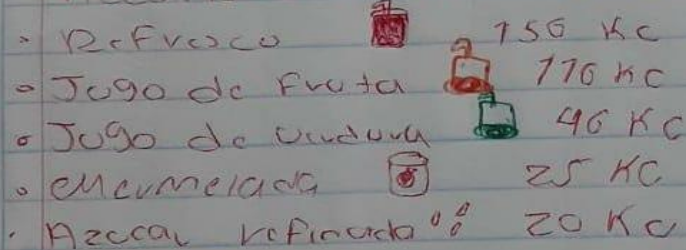 Refresco 150 Kc
Jugo de Fruta 110 Kc
Jugo de verdura 40 Kc
Mermelada 25 KC
Azucar refinada 20 Kc